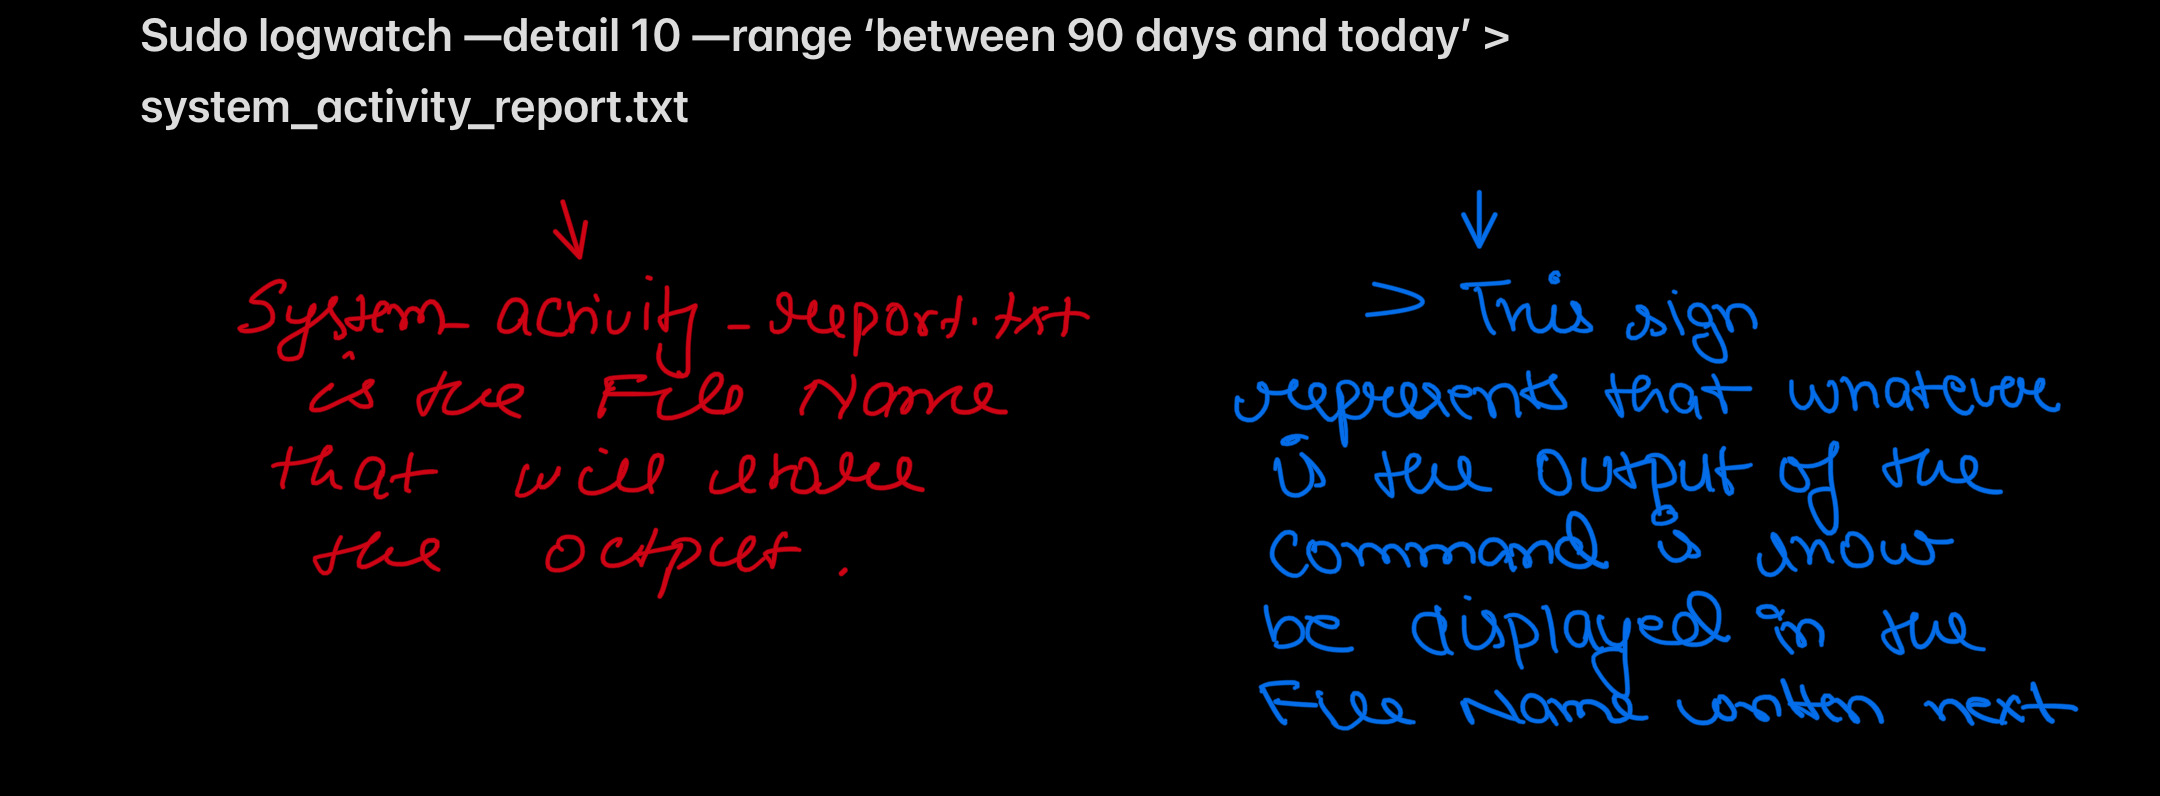 Sudo logwatch —detail 10 —range ‘between 90 days and today’ >
system_activity_report.txt
System_activity_report.txt
is the File Name
that will store
the output.
> This sign
represents that whatever
is the output of the
command is show
be displayed in the
File Name written next